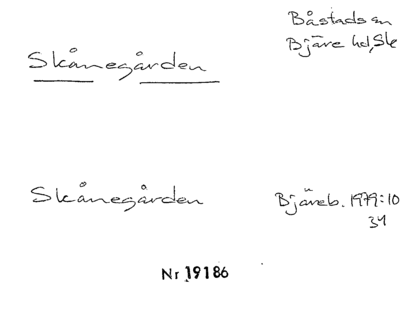 Båstads sn
Bjäre hd, Sk
Skånegården
Skånegården
Bjäreb. 1979:10
34
Nr 19186